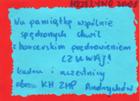 Na pamiątkę wspólnie
spędzonych chwil
z harcerskim pozdrowieniem
CZUWAJ!
kadra i uczestnicy
obozu KH ZHP Andrychów